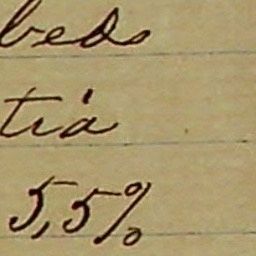 beds
tia
5,5%